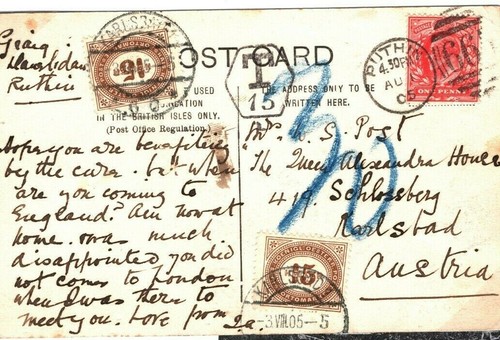 Graig
Llanbedr
Ruthin
POST CARD
USED
IN THE BRITISH ISLES ONLY.
(Post Office Regulation.)
THE ADDRESS ONLY TO BE
WRITTEN HERE.
T
15
30
RUTHIN
4.30PM
AU
ONE PENNY
KARLSBAD
15
Hope you are benefiting
by the cure. but when
are you coming to
England? Am now at
home. was much
disappointed you did
not come to London
when I was there to
meet you. Love from
Mr. A. S. Post
The Queen Alexandra House
419. Schlossberg
Karlsbad
Austria
15
-3.VIII.05-5